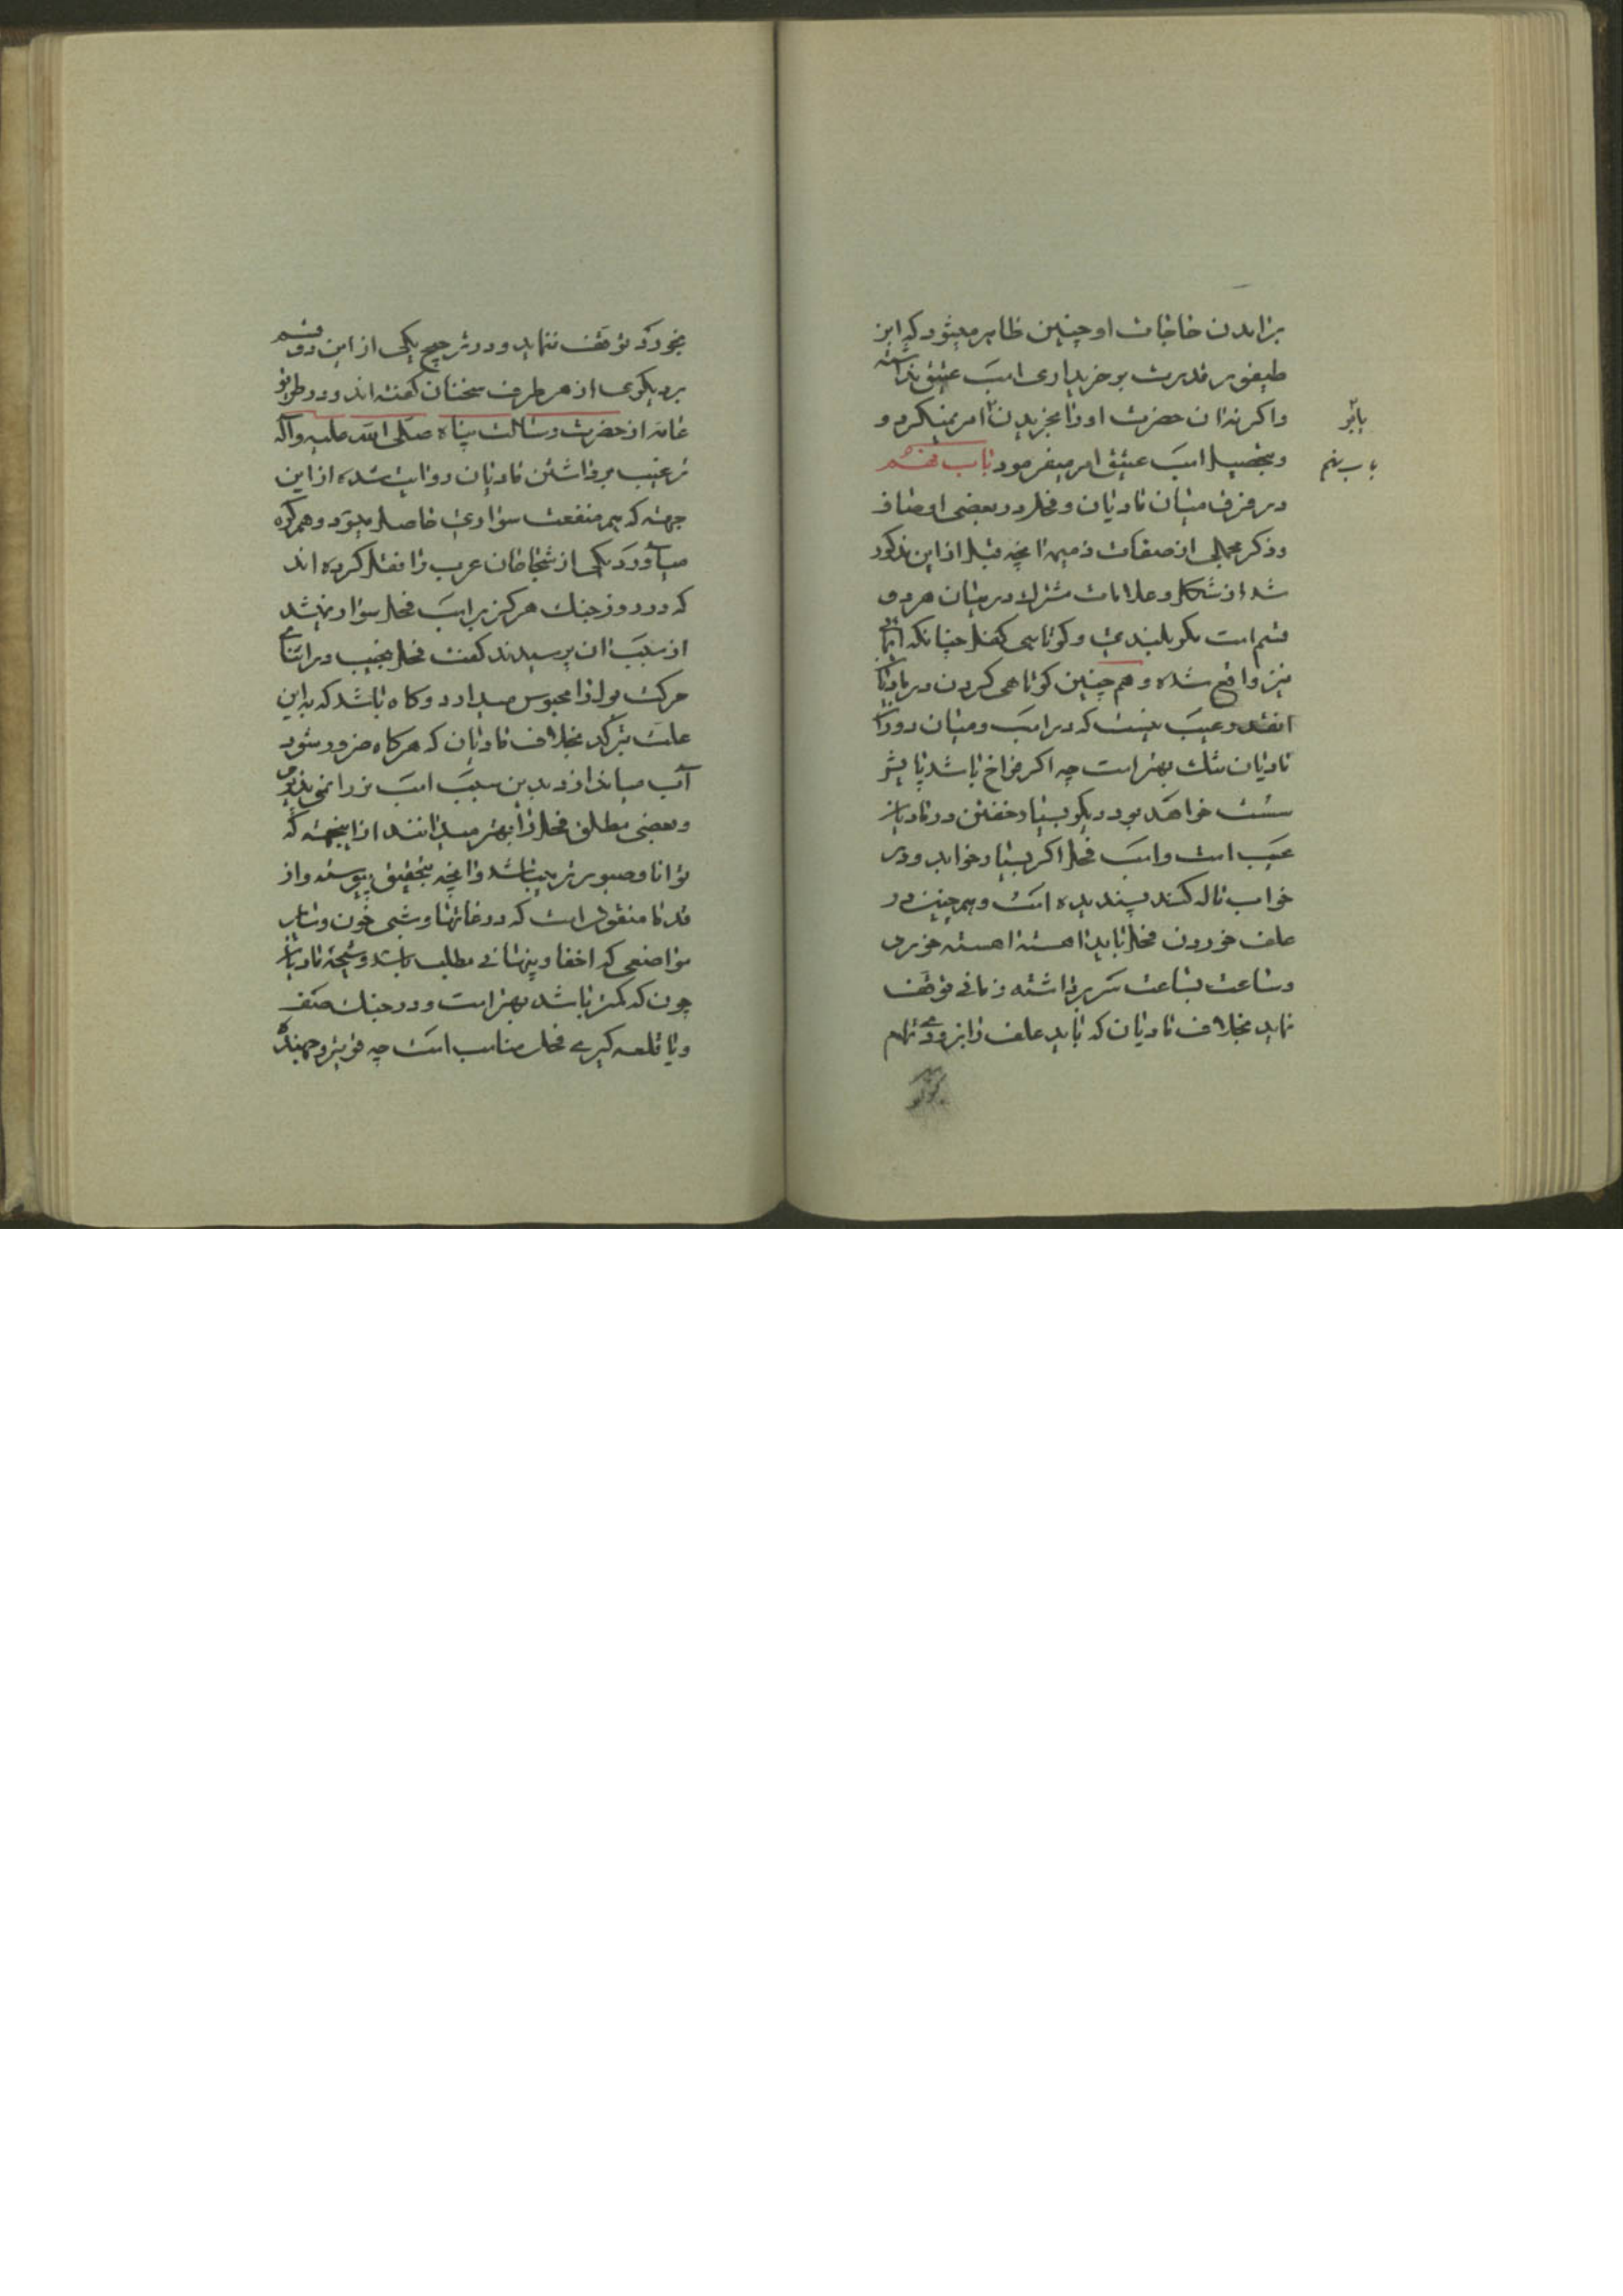 برامدن حاجات او چنین ظاهر میشود که ابن
طیفور قدرت بر خریداری اسب عتیق نداشته
واکرنه ان حضرت اورا بخریدن امر نمیکرد و
وبتحصیل اسب عتیق امر میفرمود باب پنجم
در فرق میان مادیان و فحل در بعضی اوصاف
وذکر مجملی از صفات ذمیمه انچه قبل از این مذکور
شد از شکل و علامات مشترک در میان هر دو
قسم است مکر بلندی و کوتاهی کفل چنانکه ایما
نیز واقع شده و هم چنین کوتاهی کردن در مادیان
انقدر عیب نیست که در اسب و میان دو ران
مادیان تنک بهتر است چه اکر فراخ باشد پایش
سست خواهد بود دیکر بسیار خفتن در مادیان
عیب است واسب فحل اکر بسیار خوابد و در
خواب ناله کند پسندیده است و همچنین در
علف خوردن فحل باید اهسته اهسته خورد
وساعت بساعت سر برداشته زمانی توقف
نماید بخلاف مادیان که باید علف را بزودی تمام
باب پنجم
بخورد و توقف ننماید و در ترجیح یکی از این دو قسم
بر دیکری از هر طرف سخنان کفته اند و در طریق
عامه از حضرت رسالت پناه صلی الله علیه وآله
ترغیب بر داشتن مادیان روایت شده از این
جهته که هم منفعت سواری حاصل میشود و هم کره
میآورد یکی از شجاعان عرب را نقل کرده اند
که در روز جنک هرکز بر اسب فحل سوار نمیشد
از سبب ان پرسیدند کفت فحل نجیب در اثنای
حرکت بول را محبوس میدارد و کاه باشد که به این
علت بترکد بخلاف مادیان که هرکاه ضرور شود
آب میاندازد بدین سبب اسب نر را نمی پذیرم
وبعضی مطلق فحل را بهتر میدانند از اینجهته که
توانا و صبورتر میباشد وانچه بتحقیق پیوسته واز
قدما منقول است که در غارتها و شبی خون و سایر
مواضعی که اخفا و پنهانی مطلب باشد و شیهه مادیان
چون که کمتر باشد بهتر است و در جنک صف
ویا قلعه کیری فحل مناسب است چه قویتر و جهنده